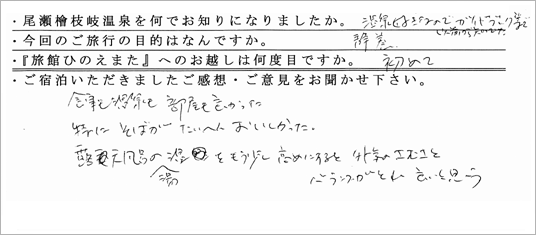 ・尾瀬檜枝岐温泉を何でお知りになりましたか。 温泉好きなので ガイドブック等で
以前から知っていた。
・今回のご旅行の目的はなんですか。 静養
・『旅館ひのえまた』へのお越しは何度目ですか。 初めて
・ご宿泊いただきましたご感想・ご意見をお聞かせ下さい。
食事も温泉も部屋も良かった
特にそばがたいへんおいしかった。
露天風呂の湯をもう少し高めにすると外気の
バランスがとれ良いと思う